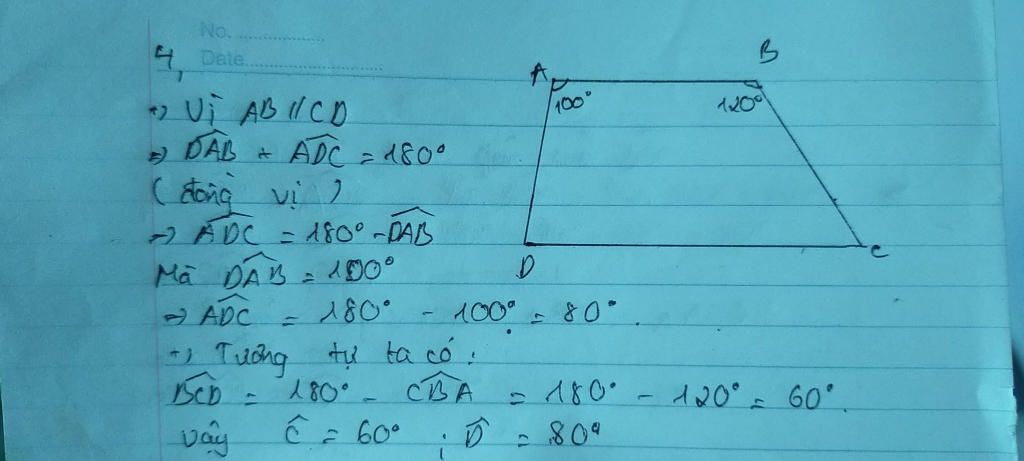 No.
4, Date
+) Vì AB // CD
=> \widehat{DAB} + \widehat{ADC} = 180°
(đồng vị)
=> \widehat{ADC} = 180° - \widehat{DAB}
Mà \widehat{DAB} = 100°
=> \widehat{ADC} = 180° - 100° = 80°.
+) Tương tự ta có:
\widehat{BCD} = 180° - \widehat{CBA} = 180° - 120° = 60°.
Vậy \widehat{C} = 60° ; \widehat{D} = 80°
A B
100° 120°
D C